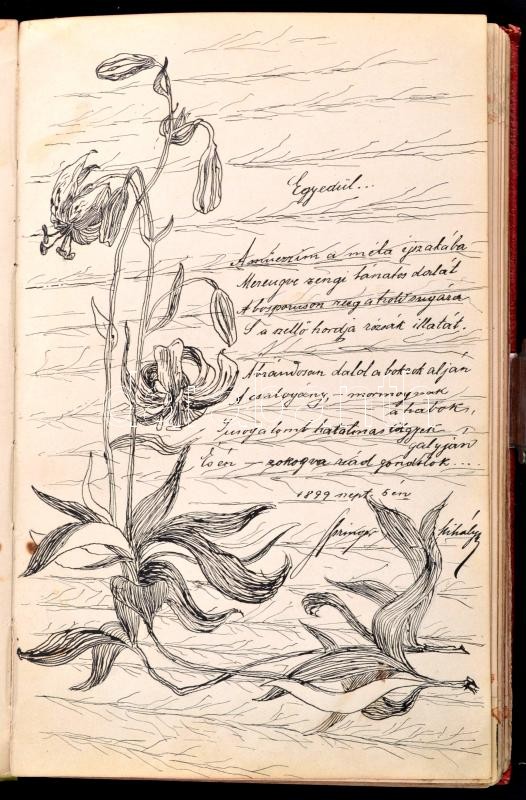 Egyedül...
A müezzim a méla éjszakába
Merengve zengi bánatos dalát
A bosporuson reng a hold sugára
S a szellő hordja rózsák illatát.
Ábrándosan dalol a bokrok alján
A csalogány, mormognak
a habok,
Susog a lomb hatalmas
gályján
És én — zokogva rád gondolok....
1899 sept. 5én
Springer Mihály